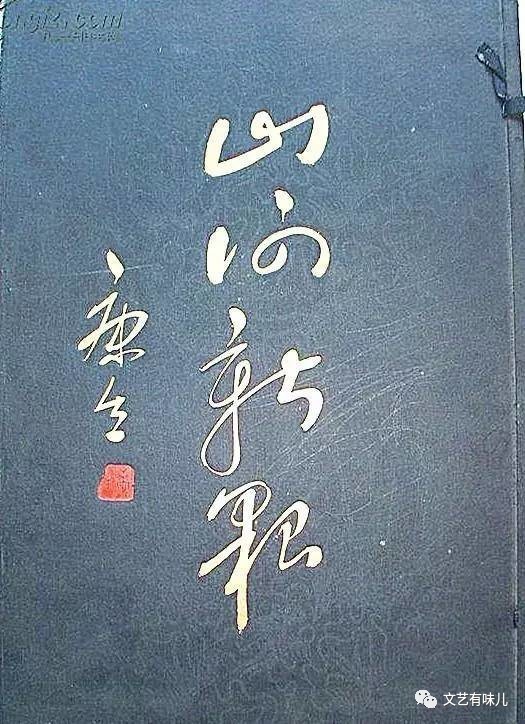 山河新貌
康生
文艺有味儿